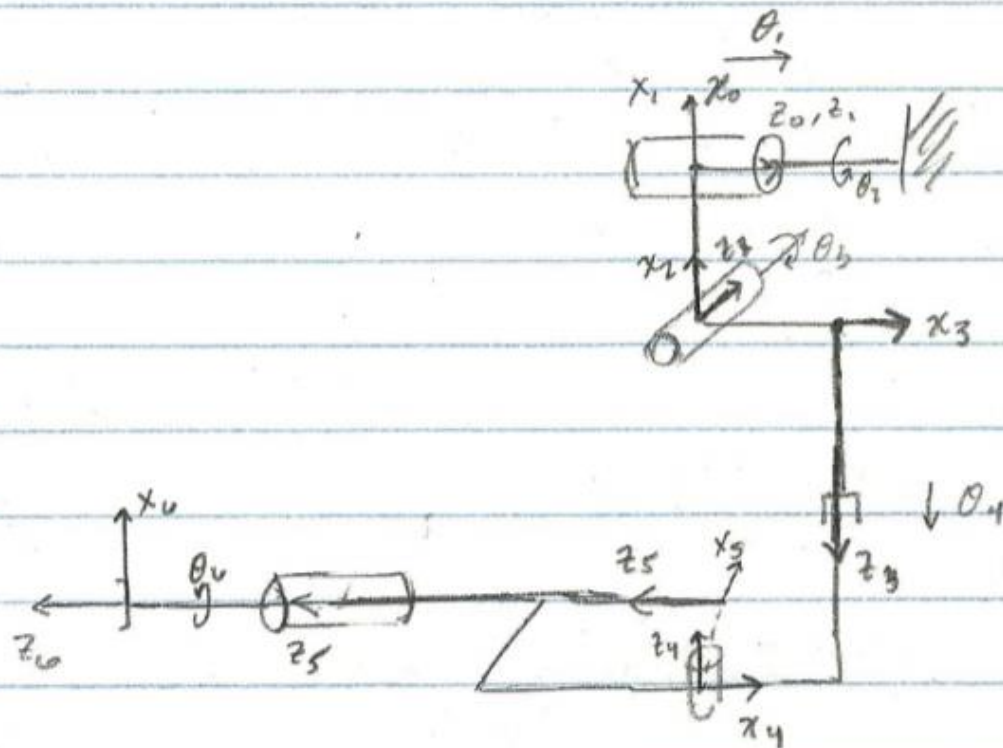 θ₁
x₁ x₀
z₀, z₁
θ₂
x₂ z₂ θ₃
x₃
θ₄
x₆
z₃
θ₆
z₅ x₅
z₆
z₅
z₄
x₄